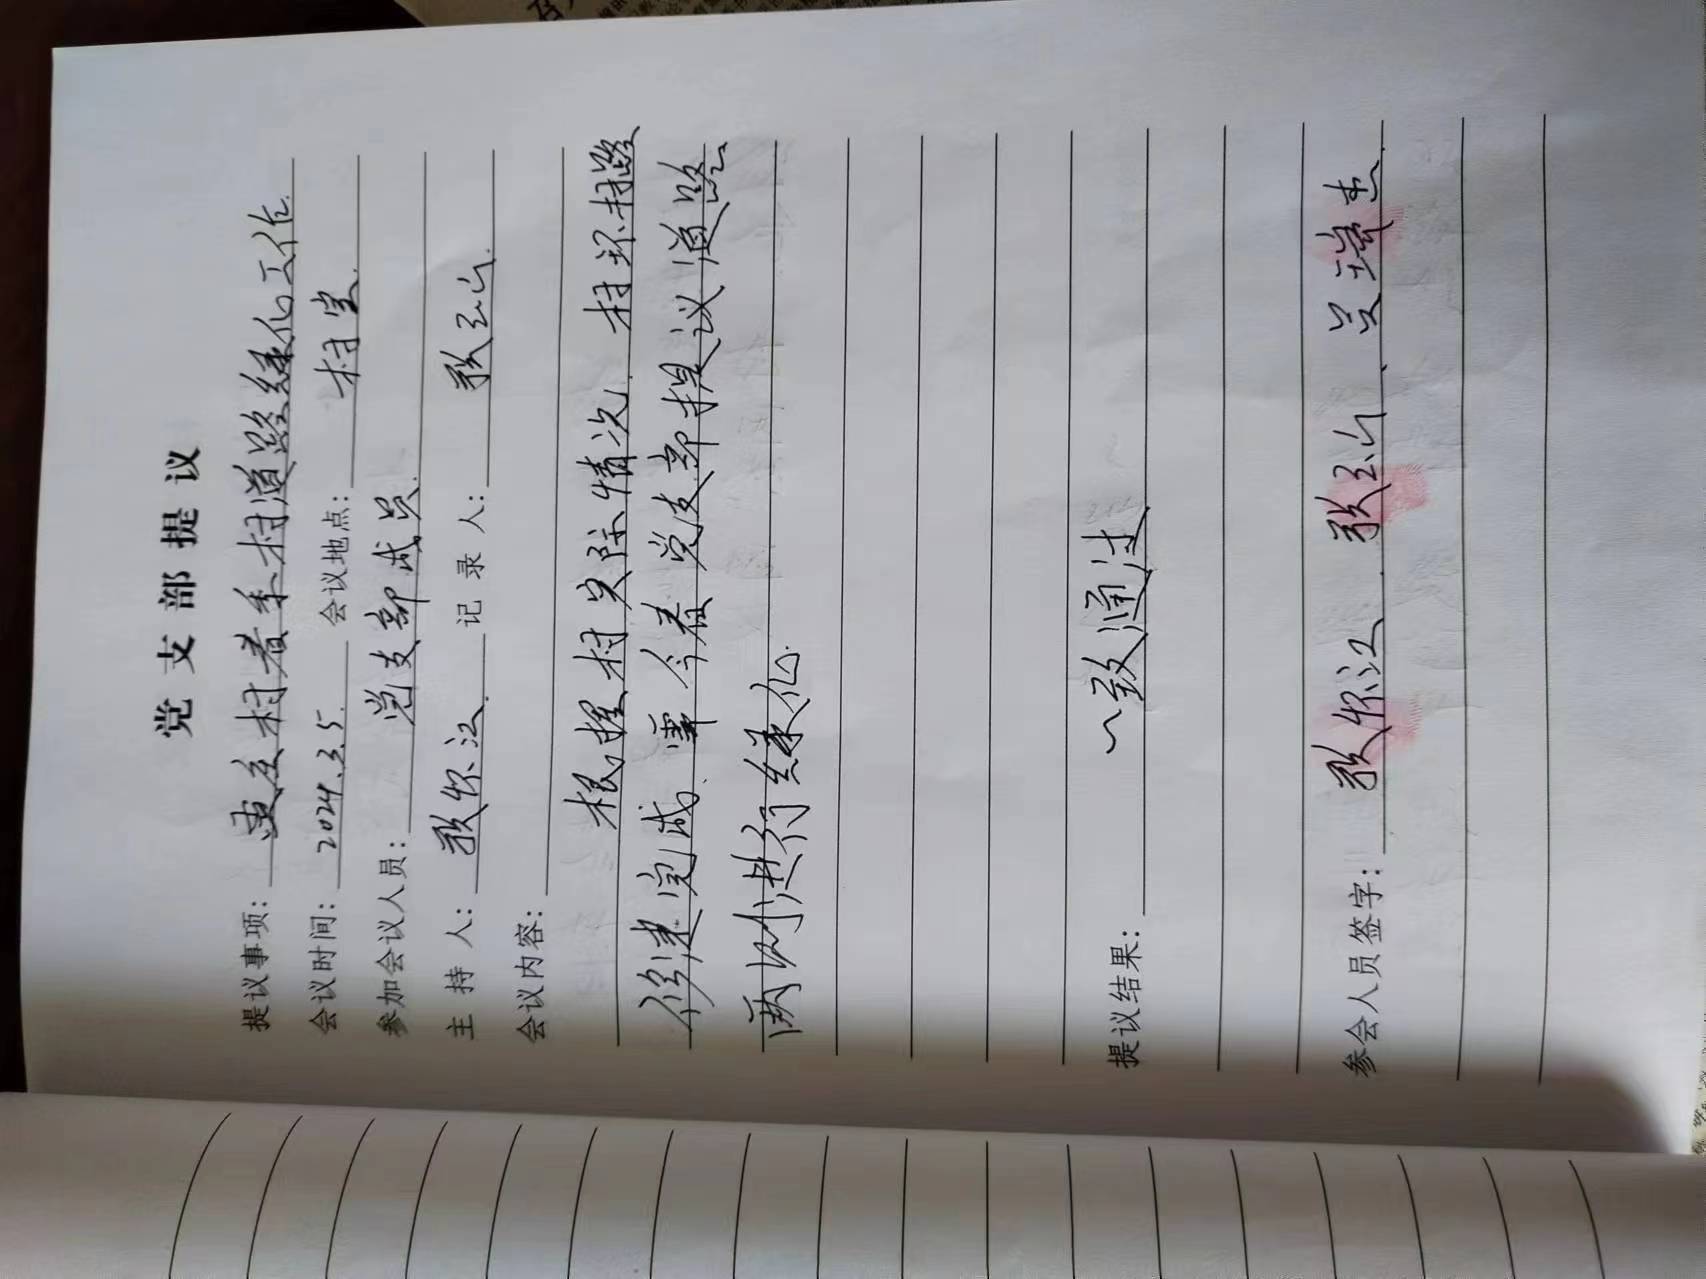 党支部提议
提议事项：村春季村道路绿化工作.
会议时间：2024.3.5. 会议地点：村室.
参加会议人员：党支部成员.
主持人：怀江. 记录人：玉山.
会议内容：
根据村实际情况，村环村路
修建完成、需今春党支部提议道路
两侧进行绿化.
提议结果：一致通过
参会人员签字：怀江、玉山、吴瑞杰.